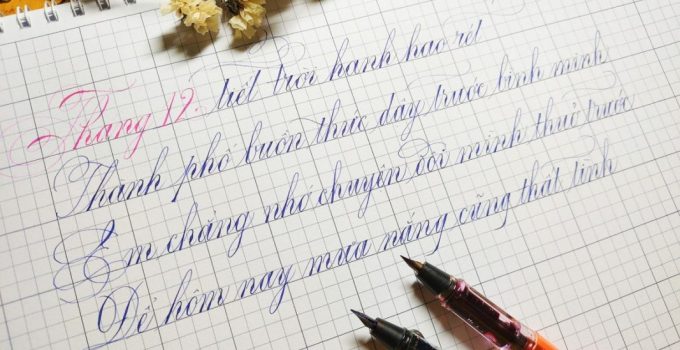 Tháng 12. tiết trời hanh hao rét
Thành phố buồn thức dậy trước bình minh
Em chẳng nhớ chuyện đôi mình thuở trước
Để hôm nay mưa nắng cũng thất tình